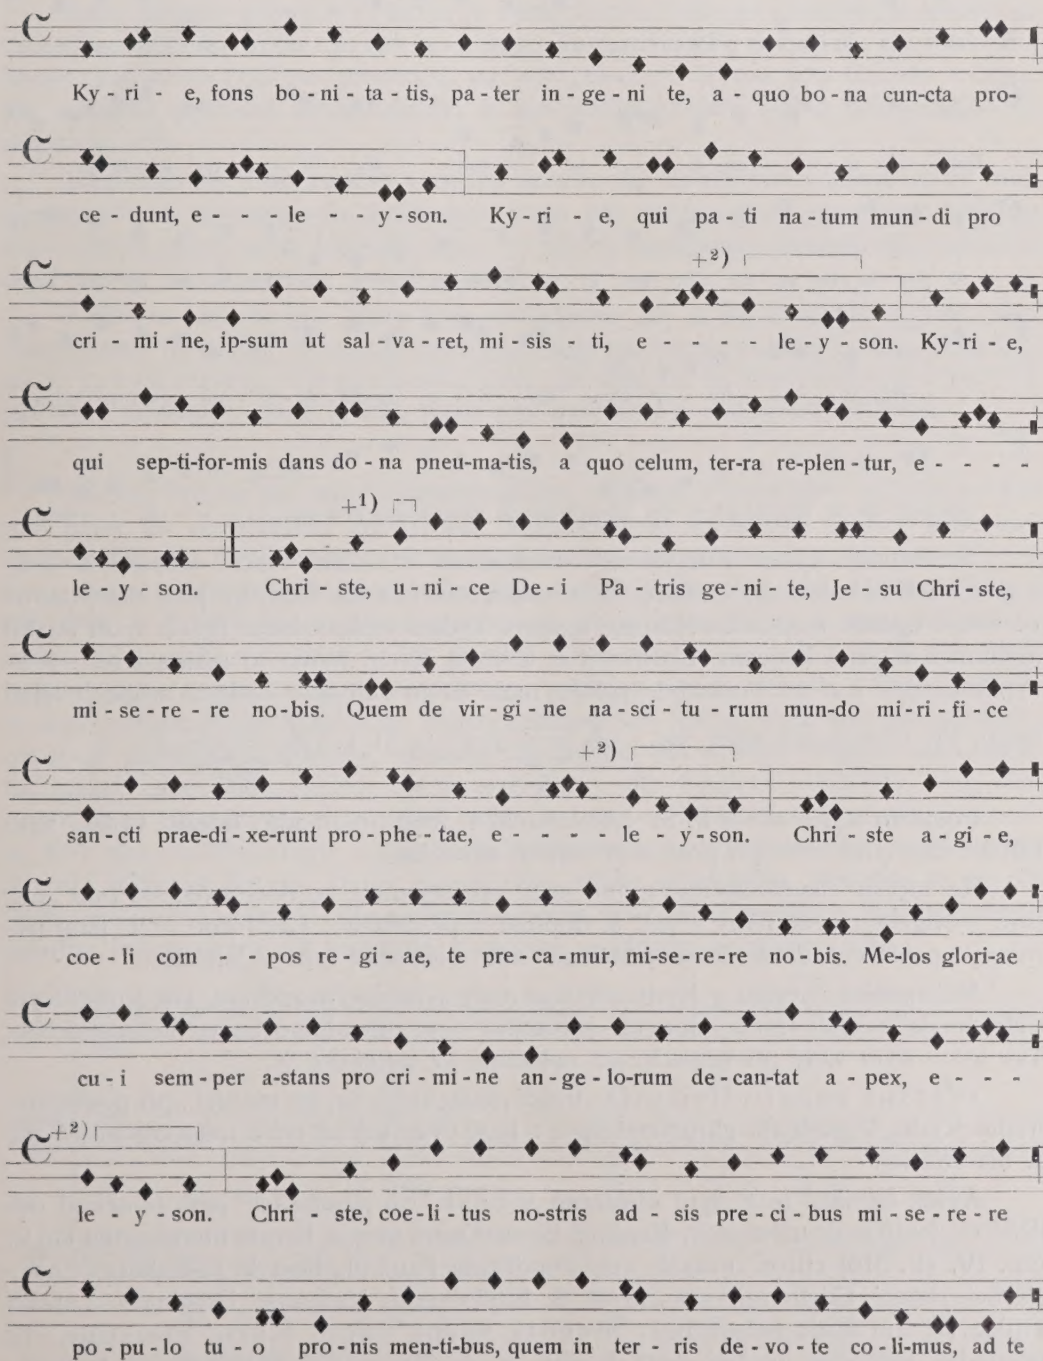 Ky - ri - e, fons bo - ni - ta - tis, pa - ter in - ge - ni te, a - quo bo - na cun-cta pro-
ce - dunt, e - - - le - - y - son. Ky - ri - e, qui pa - ti na - tum mun - di pro
+²)
cri - mi - ne, ip-sum ut sal - va - ret, mi - sis - ti, e - - - - le - y - son. Ky - ri - e,
qui sep-ti-for-mis dans do - na pneu-ma-tis, a quo celum, ter-ra re-plen - tur, e - - - -
+¹)
le - y - son. Chri - ste, u - ni - ce De - i Pa - tris ge - ni - te, Je - su Chri - ste,
mi - se - re - re no-bis. Quem de vir - gi - ne na - sci - tu - rum mun-do mi - ri - fi - ce
+²)
san - cti prae-di - xe-runt pro - phe - tae, e - - - - le - y - son. Chri - ste a - gi - e,
coe - li com - - pos re - gi - ae, te pre - ca - mur, mi-se - re - re no - bis. Me-los glori-ae
cu - i sem - per a-stans pro cri - mi - ne an - ge - lo-rum de - can-tat a - pex, e - - -
+²)
le - y - son. Chri - ste, coe - li - tus no-stris ad - sis pre - ci - bus mi - se - re - re
po - pu - lo tu - o pro - nis men-ti-bus, quem in ter - ris de - vo - te co - li-mus, ad te